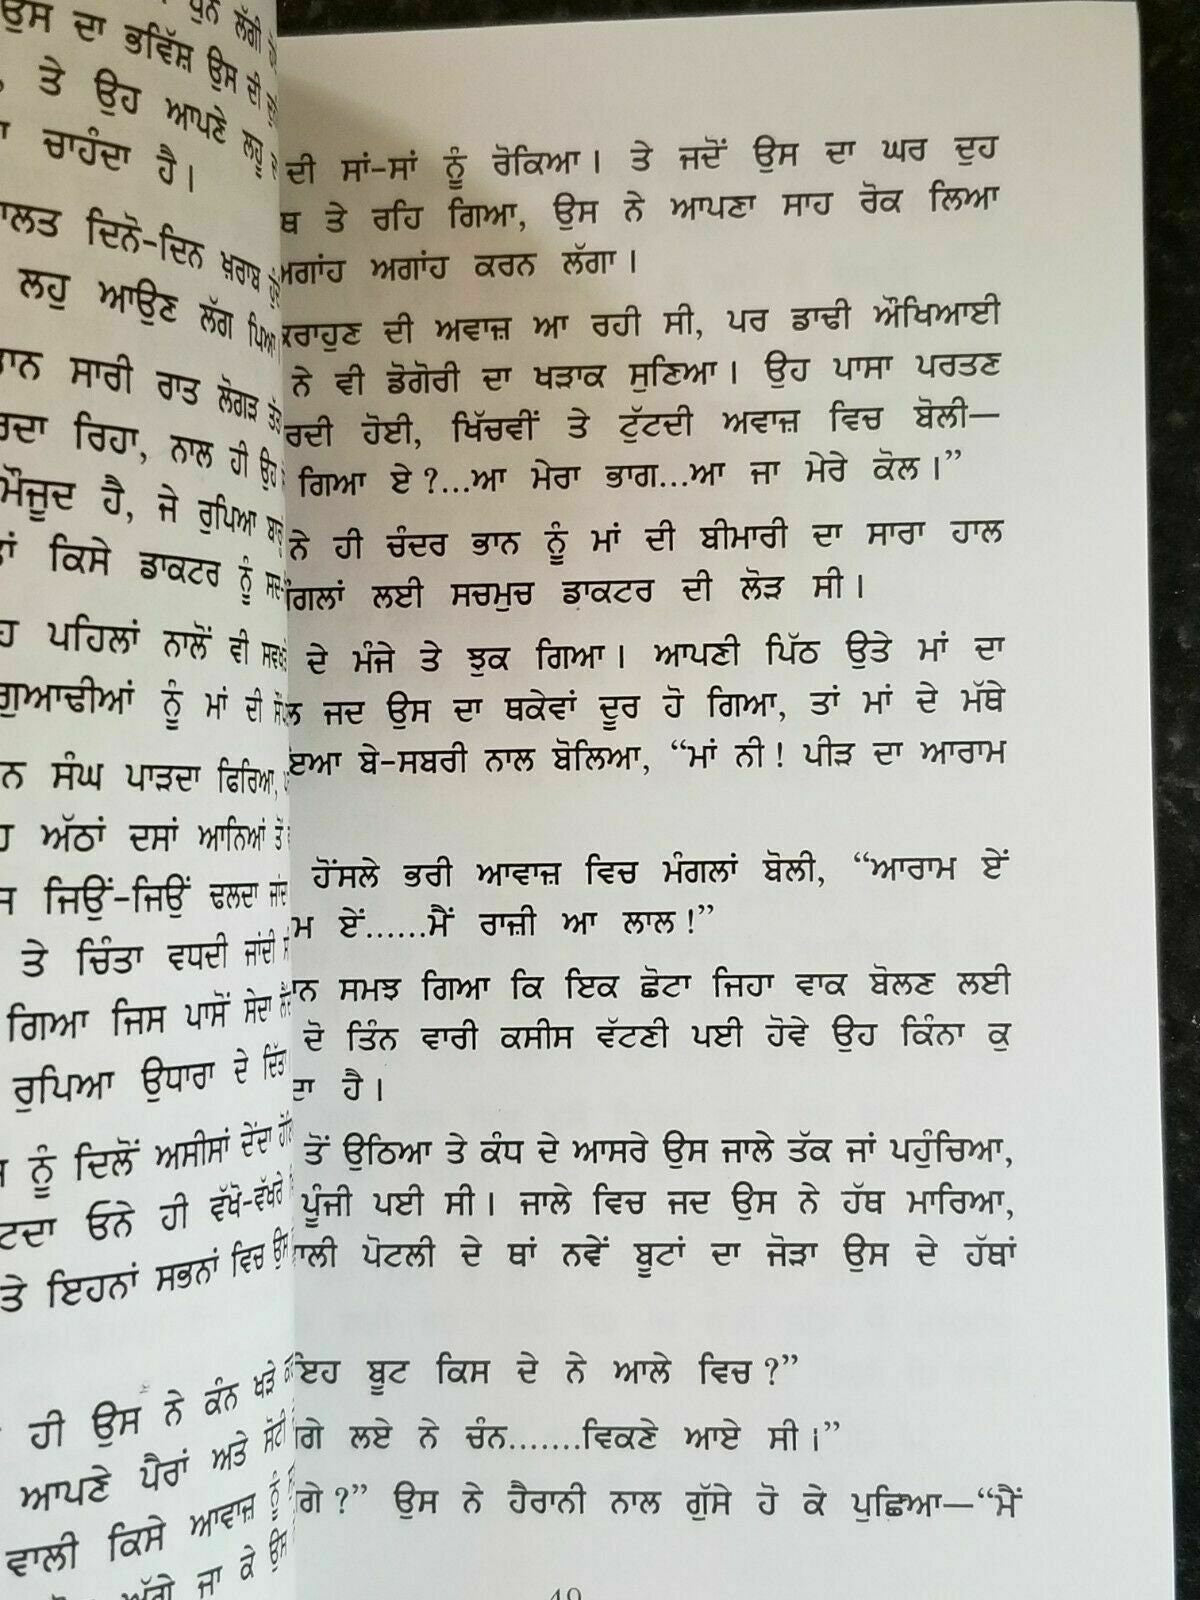 ਉਸ ਦਾ ਭਵਿੱਸ਼ ਉਸ ਦੀ
ਤੇ ਉਹ ਆਪਣੇ ਲਹੂ
ਚਾਹੰਦਾ ਹੈ।
ਦਿਨੋ-ਦਿਨ ਖ਼ਰਾਬ
ਲਹੁ ਆਉਣ ਲੱਗ ਪਿਆ
ਸਾਰੀ ਰਾਤ ਲੋਗੜ
ਰਿਹਾ, ਨਾਲ ਹੀ ਉਹ
ਮੌਜੂਦ ਹੈ, ਜੇ ਰੁਪਿਆ
ਕਿਸੇ ਡਾਕਟਰ ਨੂੰ
ਪਹਿਲਾਂ ਨਾਲੋਂ ਵੀ
ਗੁਆਢੀਆਂ ਨੂੰ ਮਾਂ ਦੀ
ਸੰਘ ਪਾੜਦਾ ਫਿਰਿਆ,
ਅੱਠਾਂ ਦਸਾਂ ਆਨਿਆਂ ਤੋਂ
ਜਿਉਂ-ਜਿਉਂ ਢਲਦਾ
ਤੇ ਚਿੰਤਾ ਵਧਦੀ ਜਾਂਦੀ
ਗਿਆ ਜਿਸ ਪਾਸੋਂ ਸੇਦਾ
ਰੁਪਿਆ ਉਧਾਰਾ ਦੇ ਦਿੱਤਾ
ਨੂੰ ਦਿਲੋਂ ਅਸੀਸਾਂ ਦੇਂਦਾ
ਓਨੇ ਹੀ ਵੱਖੋ-ਵੱਖਰੇ
ਤੇ ਇਹਨਾਂ ਸਭਨਾਂ ਵਿਚ ਉਸ
ਹੀ ਉਸ ਨੇ ਕੰਨ ਖੜੇ
ਆਪਣੇ ਪੈਰਾਂ ਅਤੇ ਸੋਟੀ
ਵਾਲੀ ਕਿਸੇ ਆਵਾਜ਼ ਨੂੰ
ਅੱਗੇ ਜਾ ਕੇ ਉਸ
ਦੀ ਸਾਂ-ਸਾਂ ਨੂੰ ਰੋਕਿਆ। ਤੇ ਜਦੋਂ ਉਸ ਦਾ ਘਰ ਦੁਹ
ਤੇ ਰਹਿ ਗਿਆ, ਉਸ ਨੇ ਆਪਣਾ ਸਾਹ ਰੋਕ ਲਿਆ
ਅਗਾਂਹ ਅਗਾਂਹ ਕਰਨ ਲੱਗਾ।
ਕਰਾਹੁਣ ਦੀ ਅਵਾਜ਼ ਆ ਰਹੀ ਸੀ, ਪਰ ਡਾਢੀ ਔਖਿਆਈ
ਨੇ ਵੀ ਡੋਗੋਰੀ ਦਾ ਖੜਾਕ ਸੁਣਿਆ। ਉਹ ਪਾਸਾ ਪਰਤਣ
ਹੋਈ, ਖਿੱਚਵੀਂ ਤੇ ਟੁੱਟਦੀ ਅਵਾਜ਼ ਵਿਚ ਬੋਲੀ—
ਗਿਆ ਏ?...ਆ ਮੇਰਾ ਭਾਗ...ਆ ਜਾ ਮੇਰੇ ਕੋਲ।”
ਨੇ ਹੀ ਚੰਦਰ ਭਾਨ ਨੂੰ ਮਾਂ ਦੀ ਬੀਮਾਰੀ ਦਾ ਸਾਰਾ ਹਾਲ
ਲਈ ਸਚਮੁਚ ਡਾਕਟਰ ਦੀ ਲੋੜ ਸੀ।
ਦੇ ਮੰਜੇ ਤੇ ਝੁਕ ਗਿਆ। ਆਪਣੀ ਪਿੱਠ ਉਤੇ ਮਾਂ ਦਾ
ਜਦ ਉਸ ਦਾ ਥਕੇਵਾਂ ਦੂਰ ਹੋ ਗਿਆ, ਤਾਂ ਮਾਂ ਦੇ ਮੱਥੇ
ਬੇ-ਸਬਰੀ ਨਾਲ ਬੋਲਿਆ, “ਮਾਂ ਨੀ! ਪੀੜ ਦਾ ਆਰਾਮ
ਹੋਂਸਲੇ ਭਰੀ ਆਵਾਜ਼ ਵਿਚ ਮੰਗਲਾਂ ਬੋਲੀ, “ਆਰਾਮ ਏਂ
ਏਂ......ਮੈਂ ਰਾਜ਼ੀ ਆ ਲਾਲ!”
ਸਮਝ ਗਿਆ ਕਿ ਇਕ ਛੋਟਾ ਜਿਹਾ ਵਾਕ ਬੋਲਣ ਲਈ
ਦੋ ਤਿੰਨ ਵਾਰੀ ਕਸੀਸ ਵੱਟਣੀ ਪਈ ਹੋਵੇ ਉਹ ਕਿੰਨਾ ਕੁ
ਹੈ।
ਤੋਂ ਉਠਿਆ ਤੇ ਕੰਧ ਦੇ ਆਸਰੇ ਉਸ ਜਾਲੇ ਤੱਕ ਜਾਂ ਪਹੁੰਚਿਆ,
ਪੂੰਜੀ ਪਈ ਸੀ। ਜਾਲੇ ਵਿਚ ਜਦ ਉਸ ਨੇ ਹੱਥ ਮਾਰਿਆ,
ਪੋਟਲੀ ਦੇ ਥਾਂ ਨਵੇਂ ਬੂਟਾਂ ਦਾ ਜੋੜਾ ਉਸ ਦੇ ਹੱਥਾਂ
ਇਹ ਬੂਟ ਕਿਸ ਦੇ ਨੇ ਆਲੇ ਵਿਚ?”
ਲਏ ਨੇ ਚੰਨ.......ਵਿਕਣੇ ਆਏ ਸੀ।”
ਉਸ ਨੇ ਹੈਰਾਨੀ ਨਾਲ ਗੁੱਸੇ ਹੋ ਕੇ ਪੁਛਿਆ—“ਮੈਂ